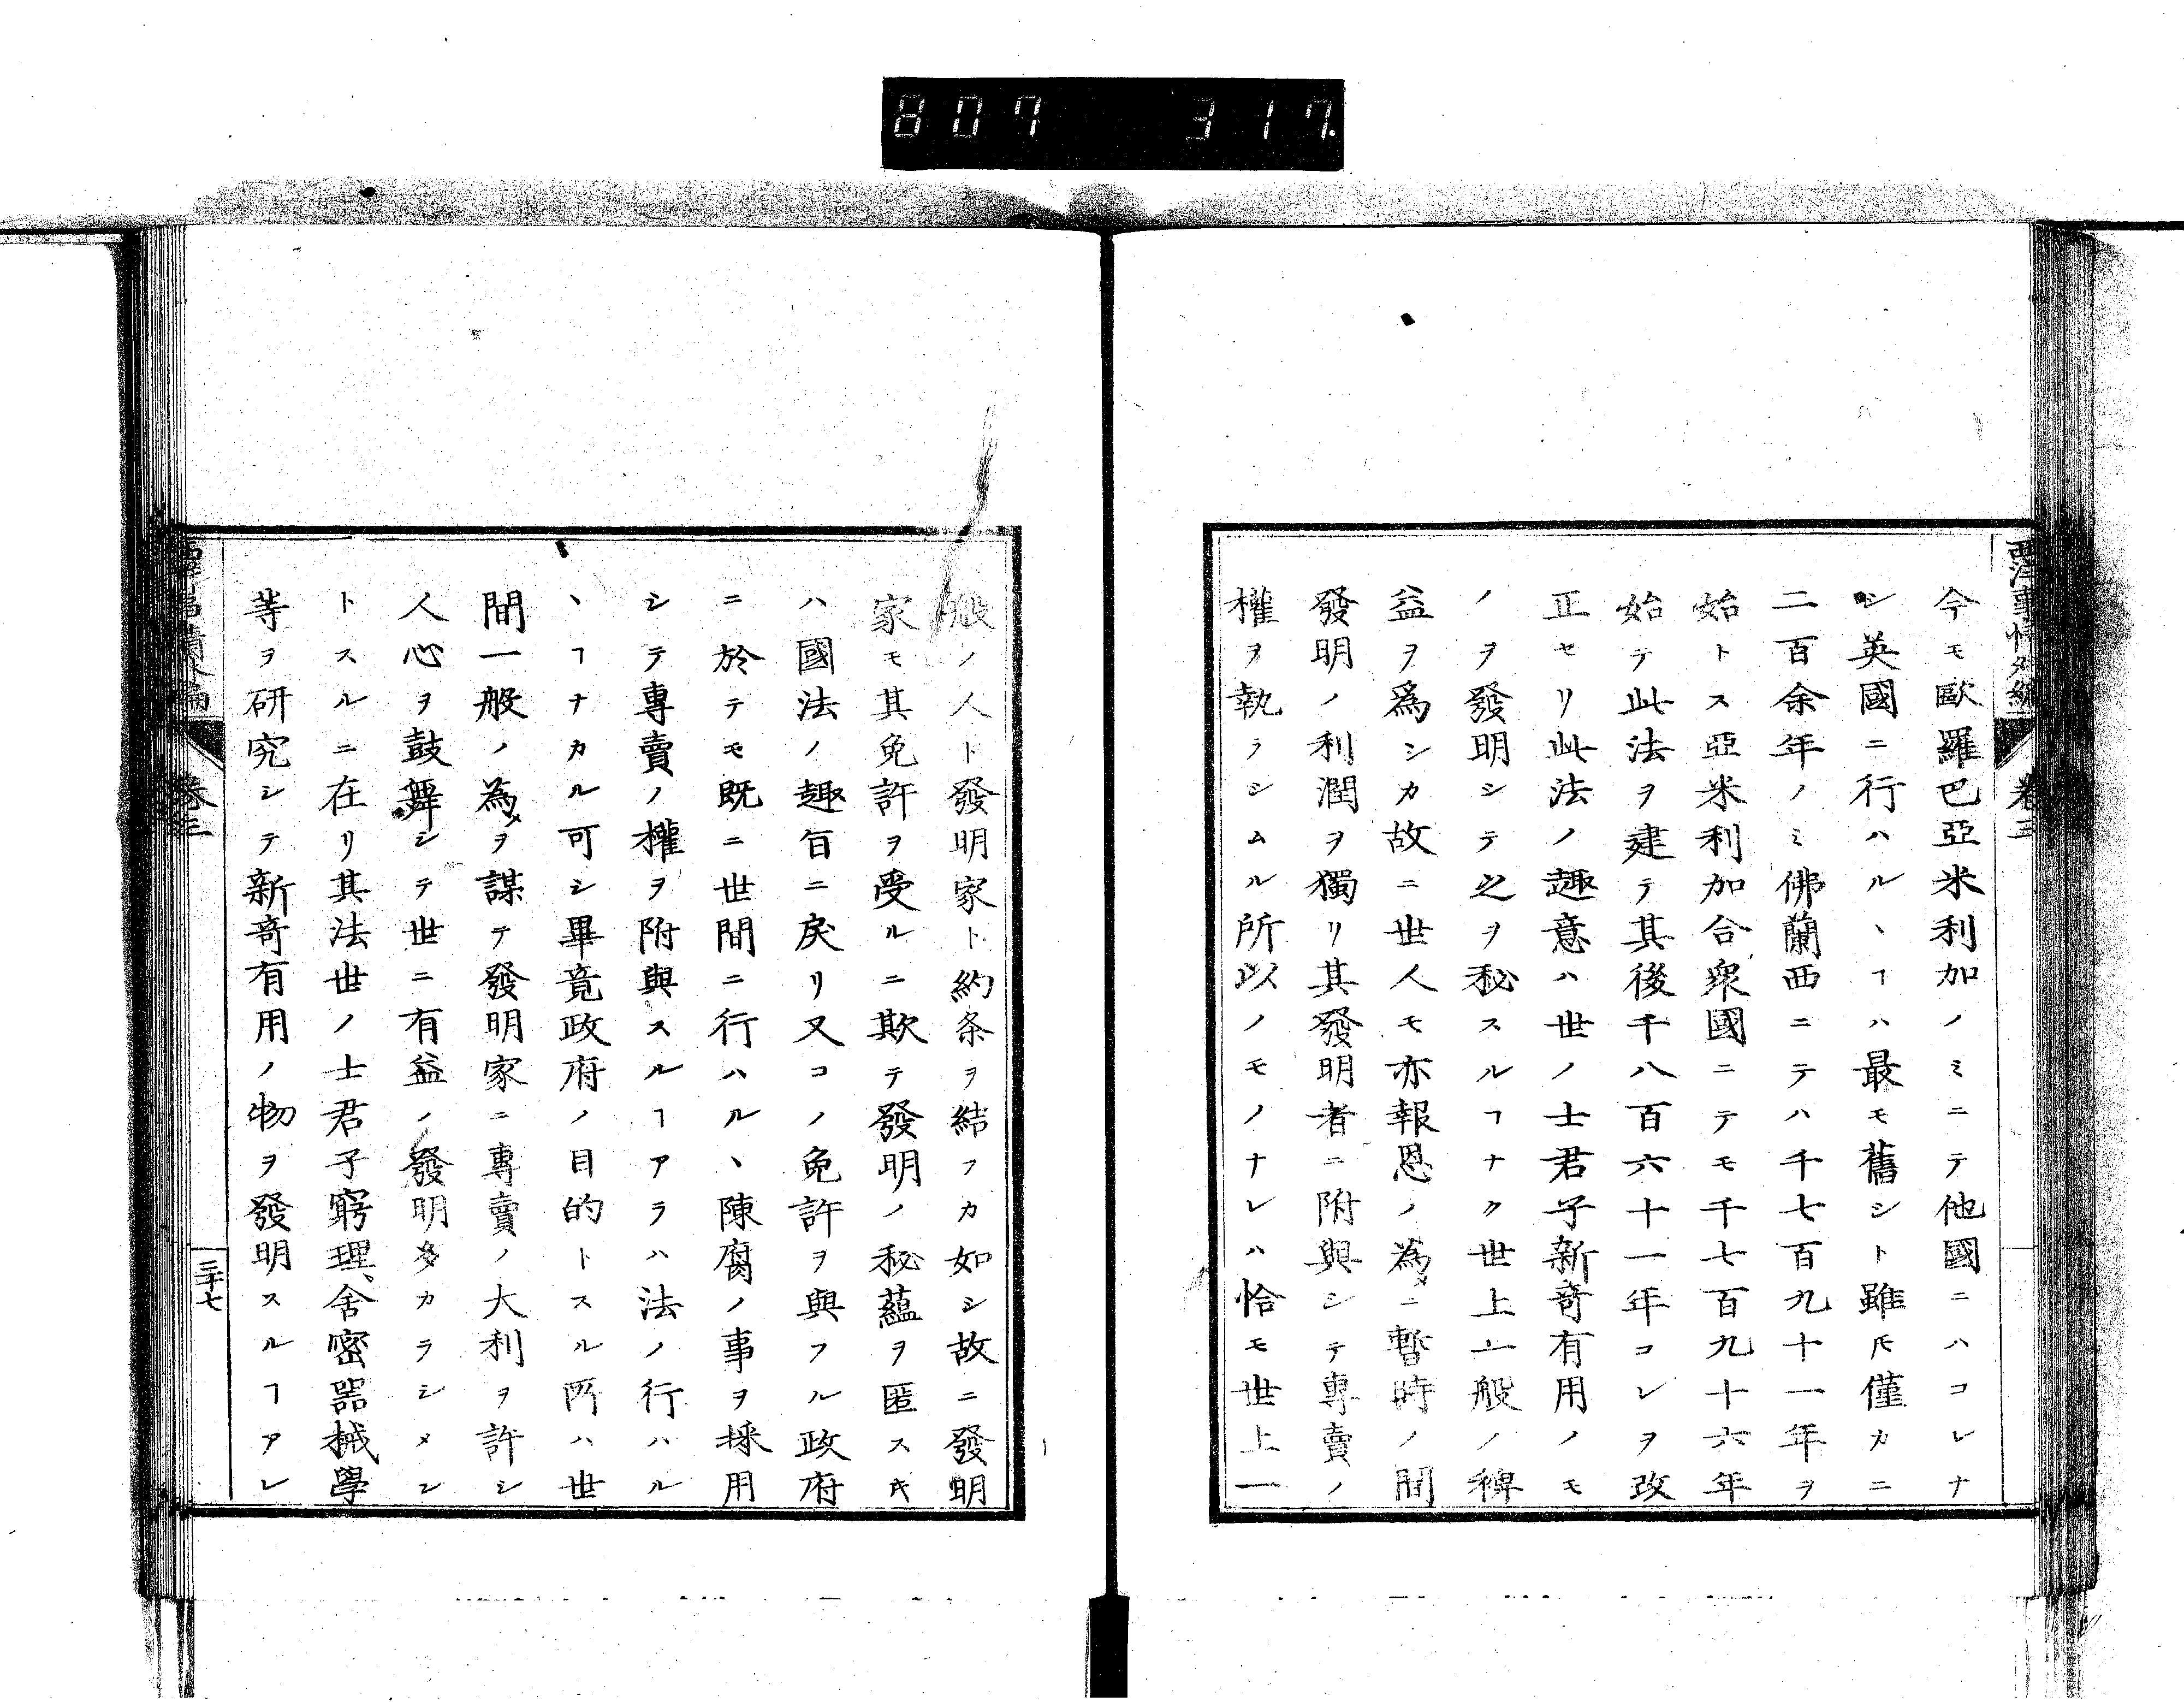 807 317.
西洋事情外編 卷三
今モ歐羅巴亞米利加ノミニテ他國ニハコレナ
シ英國ニ行ハルヽヿハ最モ舊シト雖𪜈僅カニ
二百余年ノミ佛蘭西ニテハ千七百九十一年ヲ
始トス亞米利加合衆國ニテモ千七百九十六年
始テ此法ヲ建テ其後千八百六十一年コレヲ改
正セリ此法ノ趣意ハ世ノ士君子新奇有用ノモ
ノヲ發明シテ之ヲ秘スルヿナク世上一般ノ稗
益ヲ爲シカ故ニ世人モ亦報恩ノ為メニ暫時ノ間
發明ノ利潤ヲ獨リ其發明者ニ附與シテ專賣ノ
權ヲ執ラシムル所以ノモノナレハ恰モ世上一
般ノ人ト發明家ト約条ヲ結フカ如シ故ニ發明
家モ其免許ヲ受ルニ欺テ發明ノ秘蘊ヲ匿ス𪜈
ハ國法ノ趣旨ニ戾リ又コノ免許ヲ與フル政府
ニ於テモ既ニ世間ニ行ハルヽ陳腐ノ事ヲ採用
シテ專賣ノ權ヲ附與スルヿアラハ法ノ行ハル
ヽヿナカル可シ畢竟政府ノ目的トスル所ハ世
間一般ノ為メヲ謀テ發明家ニ專賣ノ大利ヲ許シ
人心ヲ鼓舞シテ世ニ有益ノ發明多カラシメン
トスルニ在リ其法世ノ士君子窮理、舍密器械學
等ヲ研究シテ新奇有用ノ物ヲ發明スルヿアレ
卷三
三十七